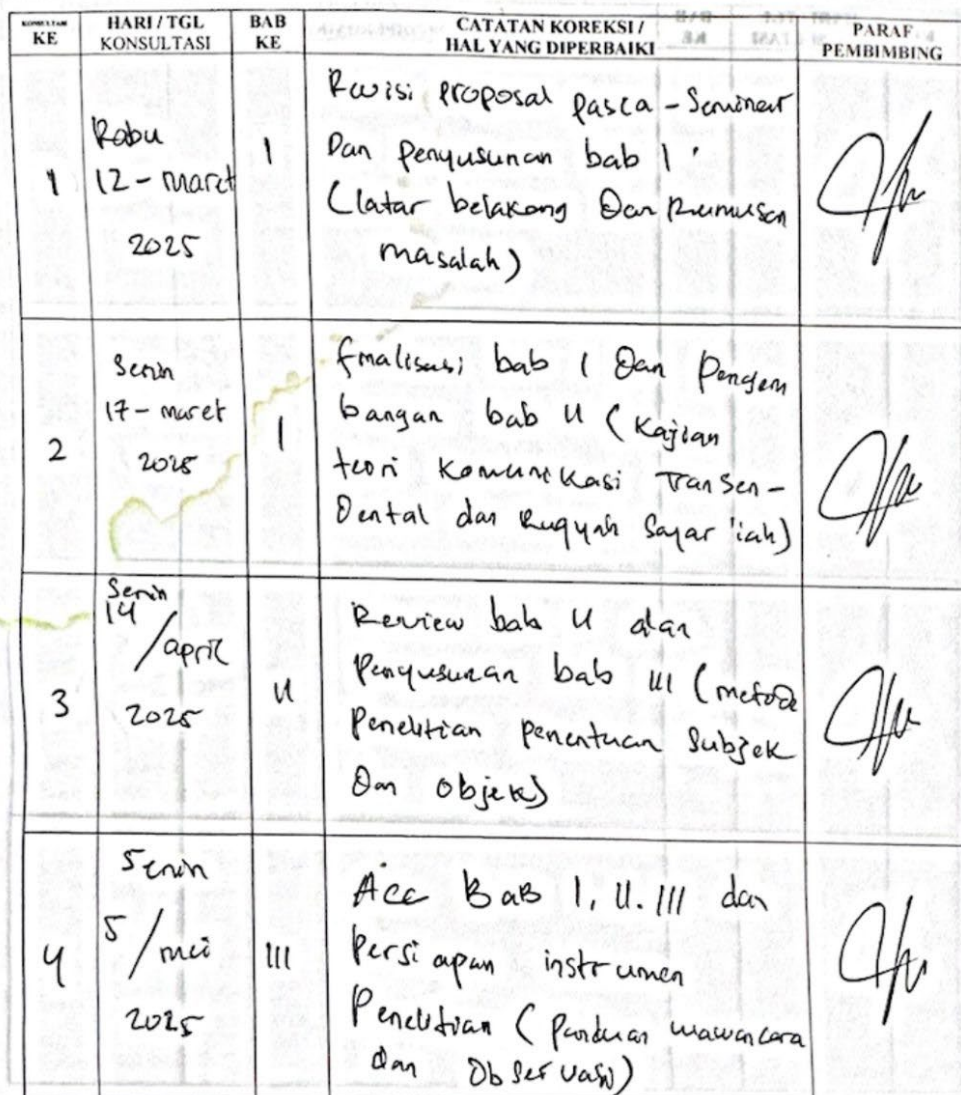 KONSULTASI KE
HARI / TGL KONSULTASI
BAB KE
CATATAN KOREKSI / HAL YANG DIPERBAIKI
PARAF PEMBIMBING
1
Rabu
12 - maret
2025
1
Revisi proposal pasca - Seminar
Dan Penyusunan bab 1
(latar belakang Dan Rumusan
masalah)
2
Senin
17 - maret
2025
1
finalisasi bab 1 Dan Pengem
bangan bab II (Kajian
teori Komunikasi Transen-
Dental dan Ruqyah Sayar'iah)
3
Senin
14 / april
2025
II
Review bab II dan
Penyusunan bab III (metode
Penelitian Penentuan Subjek
Dan objek)
4
Senin
5 / mei
2025
III
Acc BAB I, II. III dan
Persiapan instrumen
Penelitian (Panduan wawancara
dan Observasi)